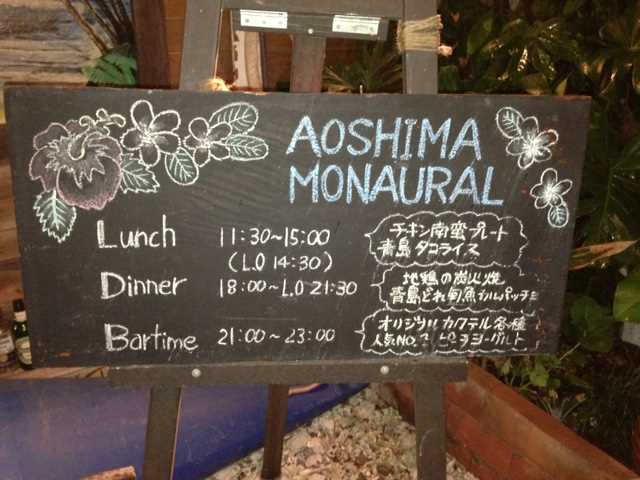 AOSHIMA
MONAURAL
Lunch 11:30~15:00
(L.O 14:30)
チキン南蛮プレート
青島タコライス
Dinner 18:00~L.O 21:30
地鶏の炭火焼
青島どれ旬魚カルパッチョ
Bartime 21:00~23:00
オリジナルカクテル各種
人気NO.1 ピーチヨーグルト